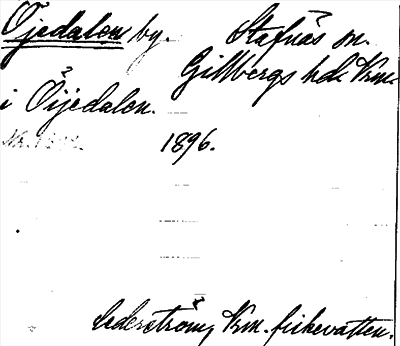 Öjedalen by. Stafnäs sn.
Gillbergs hd. Vrml.
i Öijedalen.
1896.
Cederström, Vrm. fiskevatten.